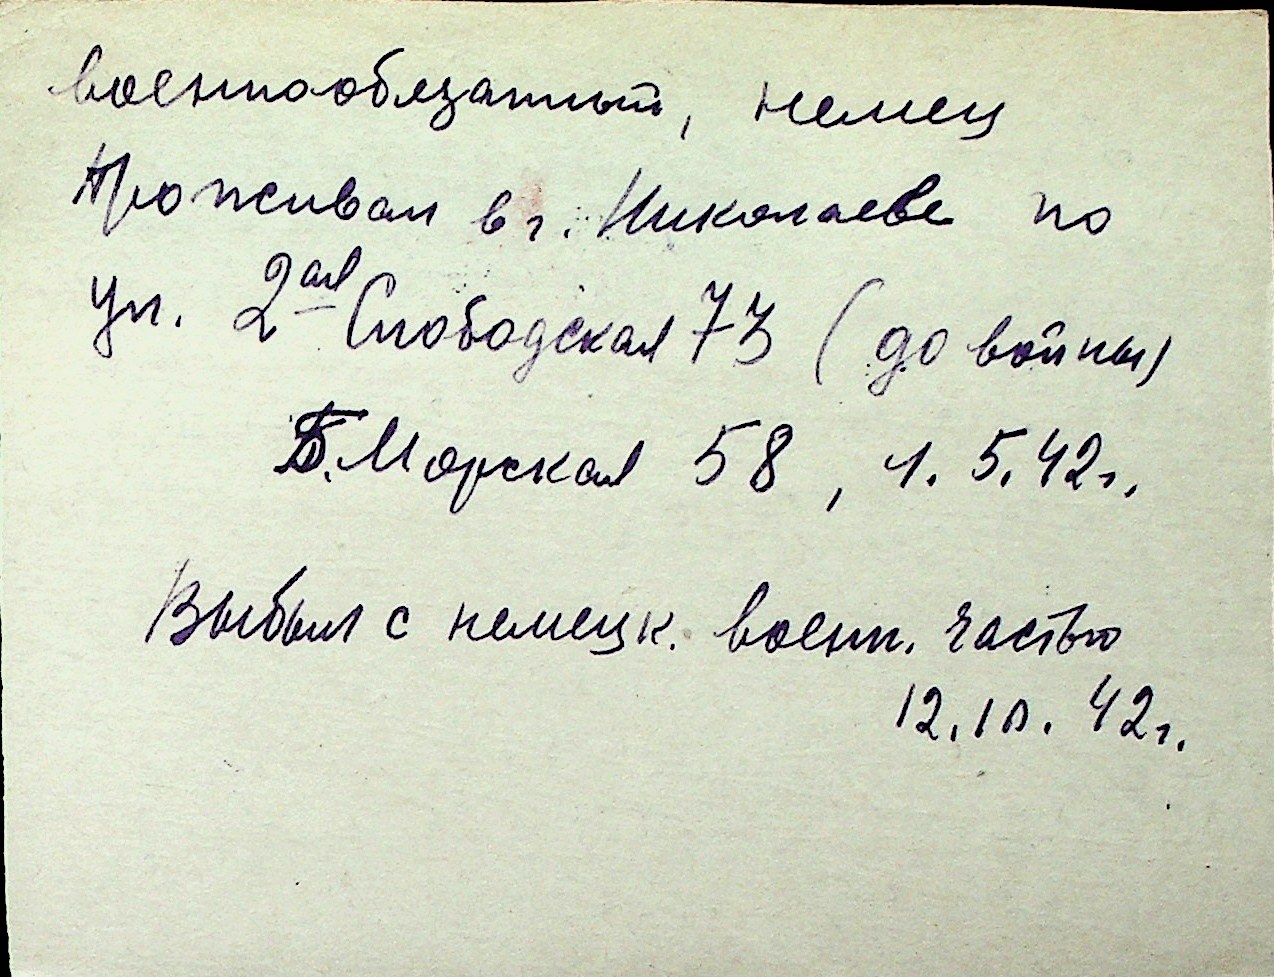 военнообязанный, немец
Проживал в г. Николаеве по
ул. 2ая Слободская 73 (до войны)
Б. Морская 58, 1.5.42г.
Выбыл с немецк. военн. частью
12.10.42г.